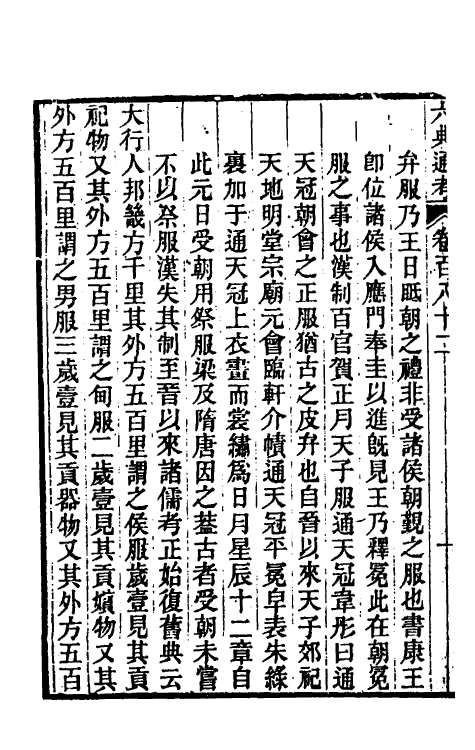 六典通考 卷百八十二 十
弁服乃王日眡朝之禮非受諸侯朝覲之服也書康王
卽位諸侯入應門奉圭以進旣見王乃釋冕此在朝冕
服之事也漢制百官賀正月天子服通天冠韋彤曰通
天冠朝會之正服猶古之皮弁也自晉以來天子郊祀
天地明堂宗廟元會臨軒介幘通天冠平冕皁表朱綠
裏加于通天冠上衣畫而裳繡爲日月星辰十二章自
此元日受朝用祭服梁及隋唐因之葢古者受朝未嘗
不以祭服漢失其制至晉以來諸儒考正始復舊典云
大行人邦畿方千里其外方五百里謂之侯服歲壹見其貢
祀物又其外方五百里謂之甸服二歲壹見其貢嬪物又其
外方五百里謂之男服三歲壹見其貢器物又其外方五百